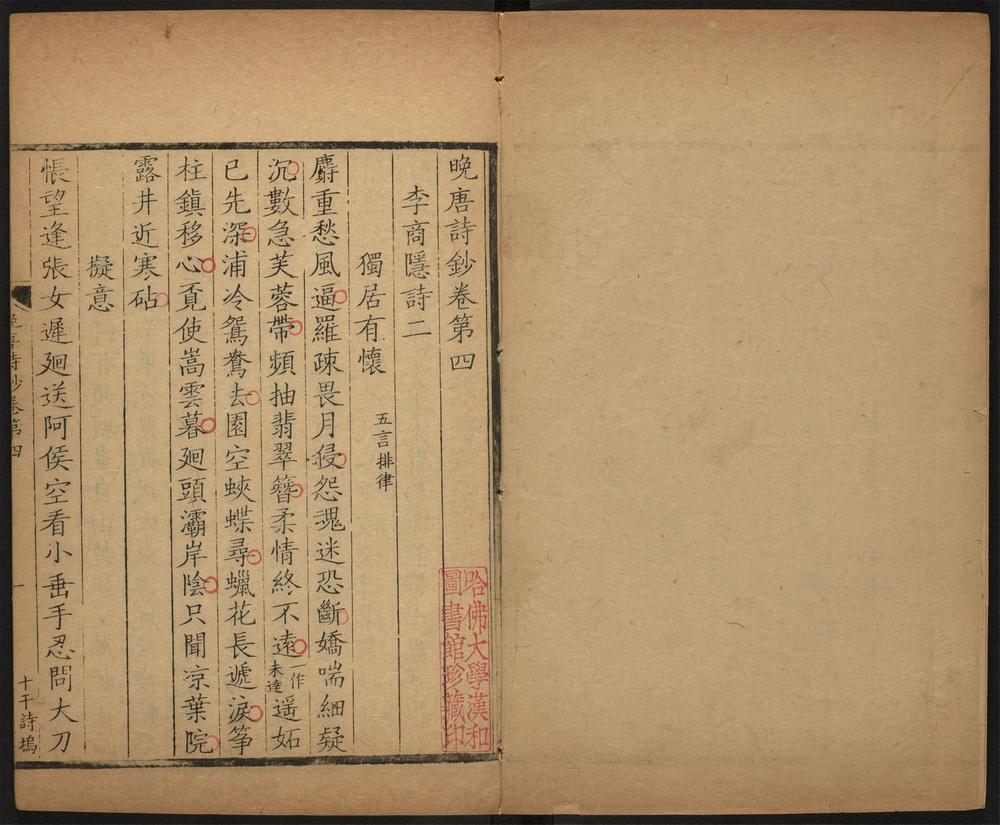 晚唐詩鈔卷第四
李商隱詩二
獨居有懷 五言排律
麝重愁風逼羅疎畏月侵怨魂迷恐斷嬌喘細疑
沉數急芙蓉帶頻抽翡翠簪柔情終不遠一作未達遥妬
已先深浦冷鴛鴦去園空蛺蝶尋蠟花長遞淚筝
柱鎮移心覔使嵩雲暮廻頭灞岸陰只聞凉葉院
露井近寒砧
擬意
悵望逢張女遲廻送阿侯空看小垂手忍問大刀
晚唐詩鈔卷第四
一
十干詩塢
哈佛大學漢和
圖書館珍藏印